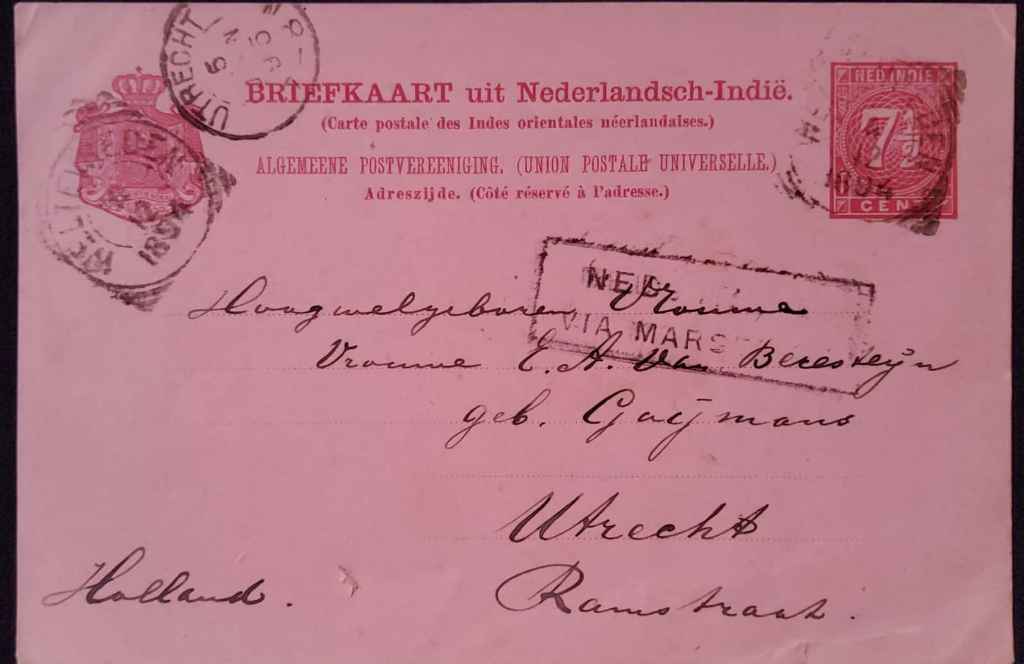 UTRECHT
5 N
95
BRIEFKAART uit Nederlandsch-Indië.
(Carte postale des Indes orientales néerlandaises.)
ALGEMEENE POSTVEREENIGING. (UNION POSTALE UNIVERSELLE.)
Adreszijde. (Côté réservé à l'adresse.)
NED. INDIE
7½
CENT
1894
1894
NED
VIA MARS
Hoogwelgeboren Vrouwe
Vrouwe E. A. Van Beresteÿn
geb. Goÿmans
Utrecht
Ramstraat.
Holland.